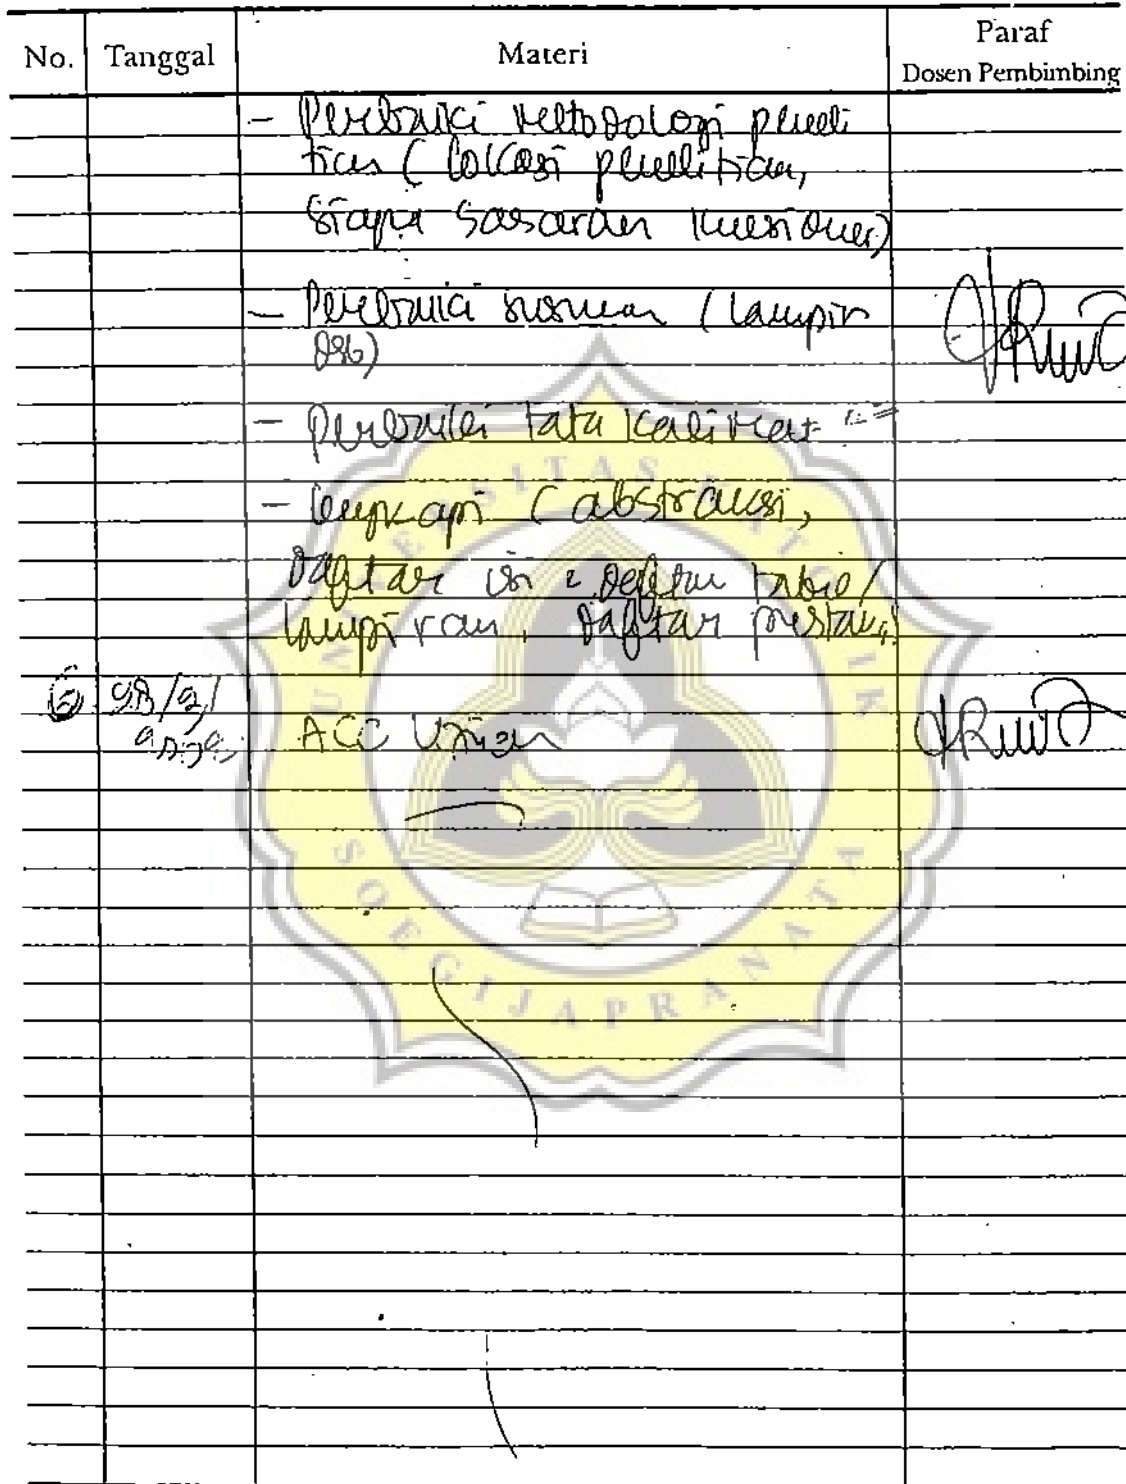 No. Tanggal Materi Paraf
Dosen Pembimbing
- Perbaiki metodologi peneli
tian (lokasi penelitian,
siapa sasaran kuesioner)
- Perbaiki susunan (lampiran
dsb)
- Perbaiki tata kalimat
- lengkapi (abstraksi,
Daftar isi, Daftar
lampiran, daftar pustaka)
ACC Ujian
UNIVERSITAS KATOLIK
SOEGIJAPRANATA